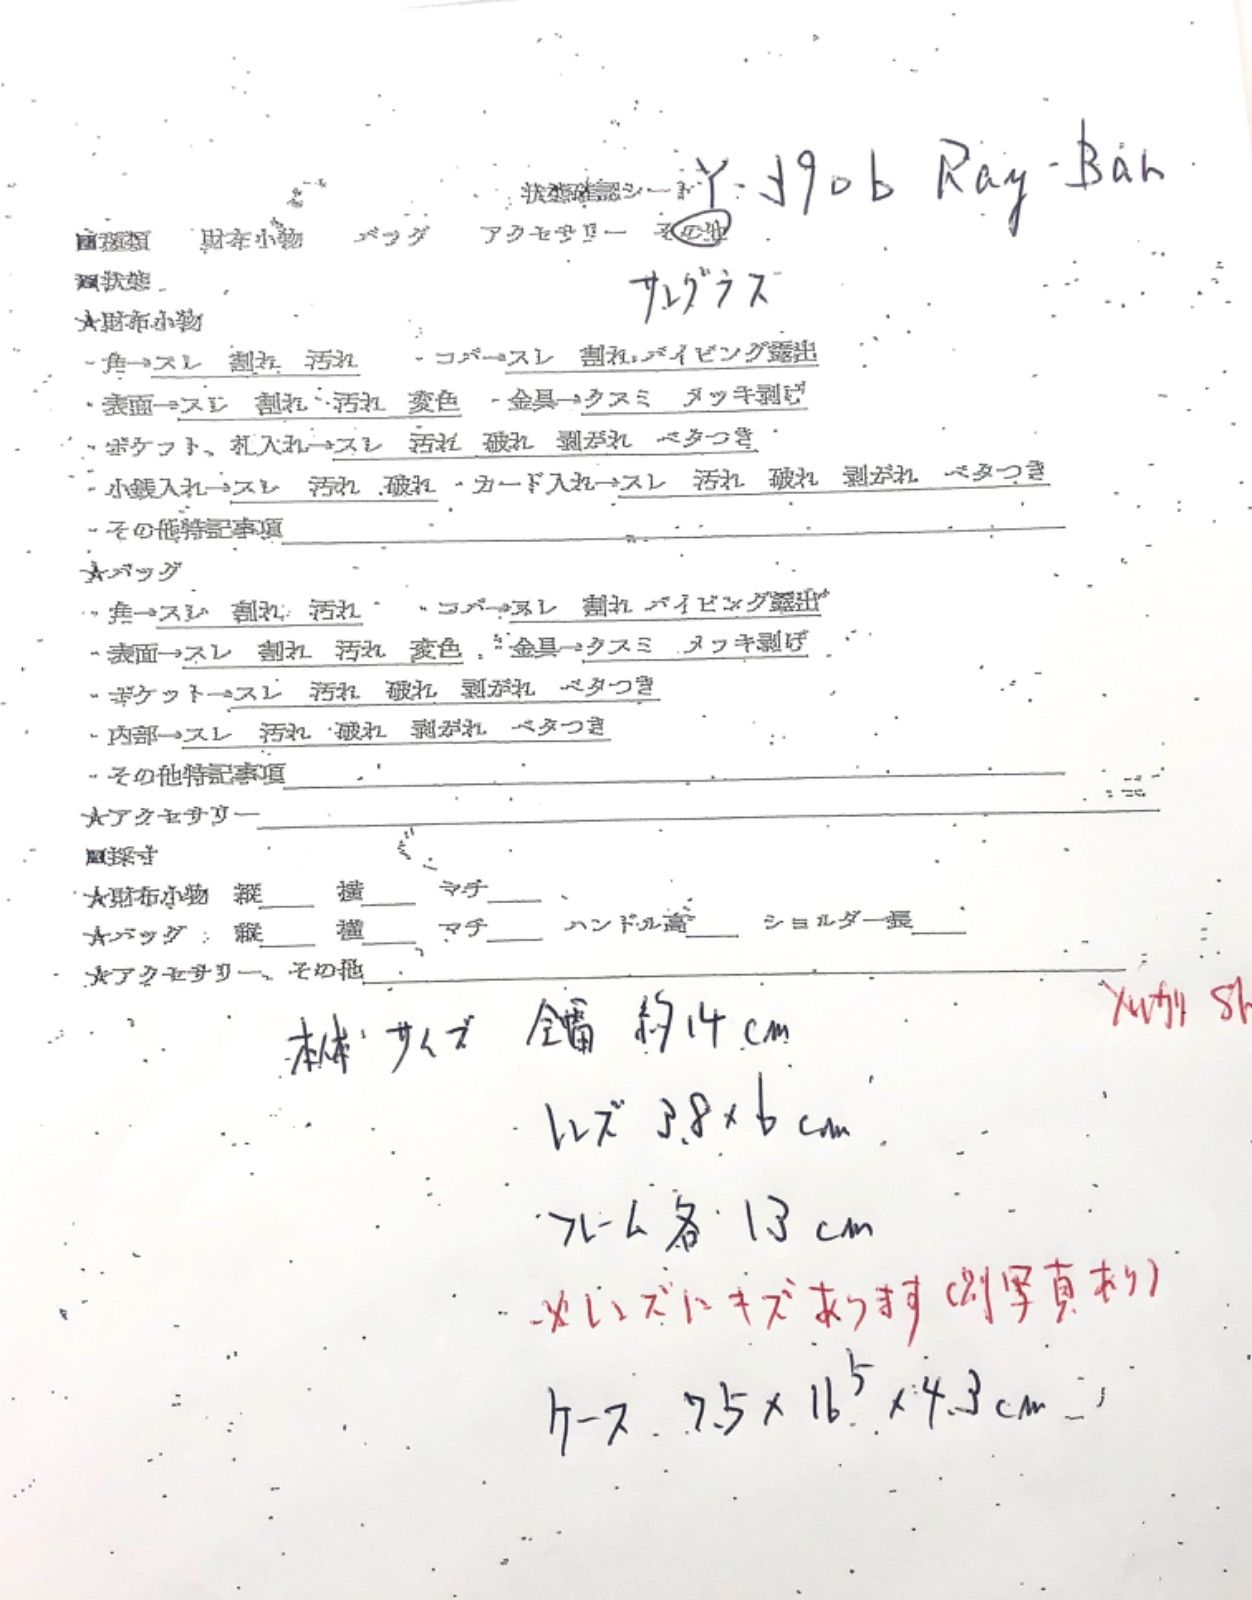 状態確認シート Y-3906 Ray-Ban
■種類 財布小物 バッグ アクセサリー その他
■状態 サングラス
★財布小物
・角→スレ 割れ 汚れ ・コバ→スレ 割れ パイピング露出
・表面→スレ 割れ 汚れ 変色 ・金具→クスミ メッキ剥げ
・ポケット、札入れ→スレ 汚れ 破れ 剥がれ ベタつき
・小銭入れ→スレ 汚れ 破れ ・カード入れ→スレ 汚れ 破れ 剥がれ ベタつき
・その他特記事項
★バッグ
・角→スレ 割れ 汚れ ・コバ→スレ 割れ パイピング露出
・表面→スレ 割れ 汚れ 変色 ・金具→クスミ メッキ剥げ
・ポケット→スレ 汚れ 破れ 剥がれ ベタつき
・内部→スレ 汚れ 破れ 剥がれ ベタつき
・その他特記事項
★アクセサリー
■採寸
★財布小物 縦 横 マチ
★バッグ 縦 横 マチ ハンドル高 ショルダー長
★アクセサリー、その他
メルカリ Sh
本体サイズ 全幅 約14cm
レンズ 3.8×6cm
フレーム各 13cm
※レンズにキズあります(別写真あり)
ケース 7.5×16.5×4.3cm